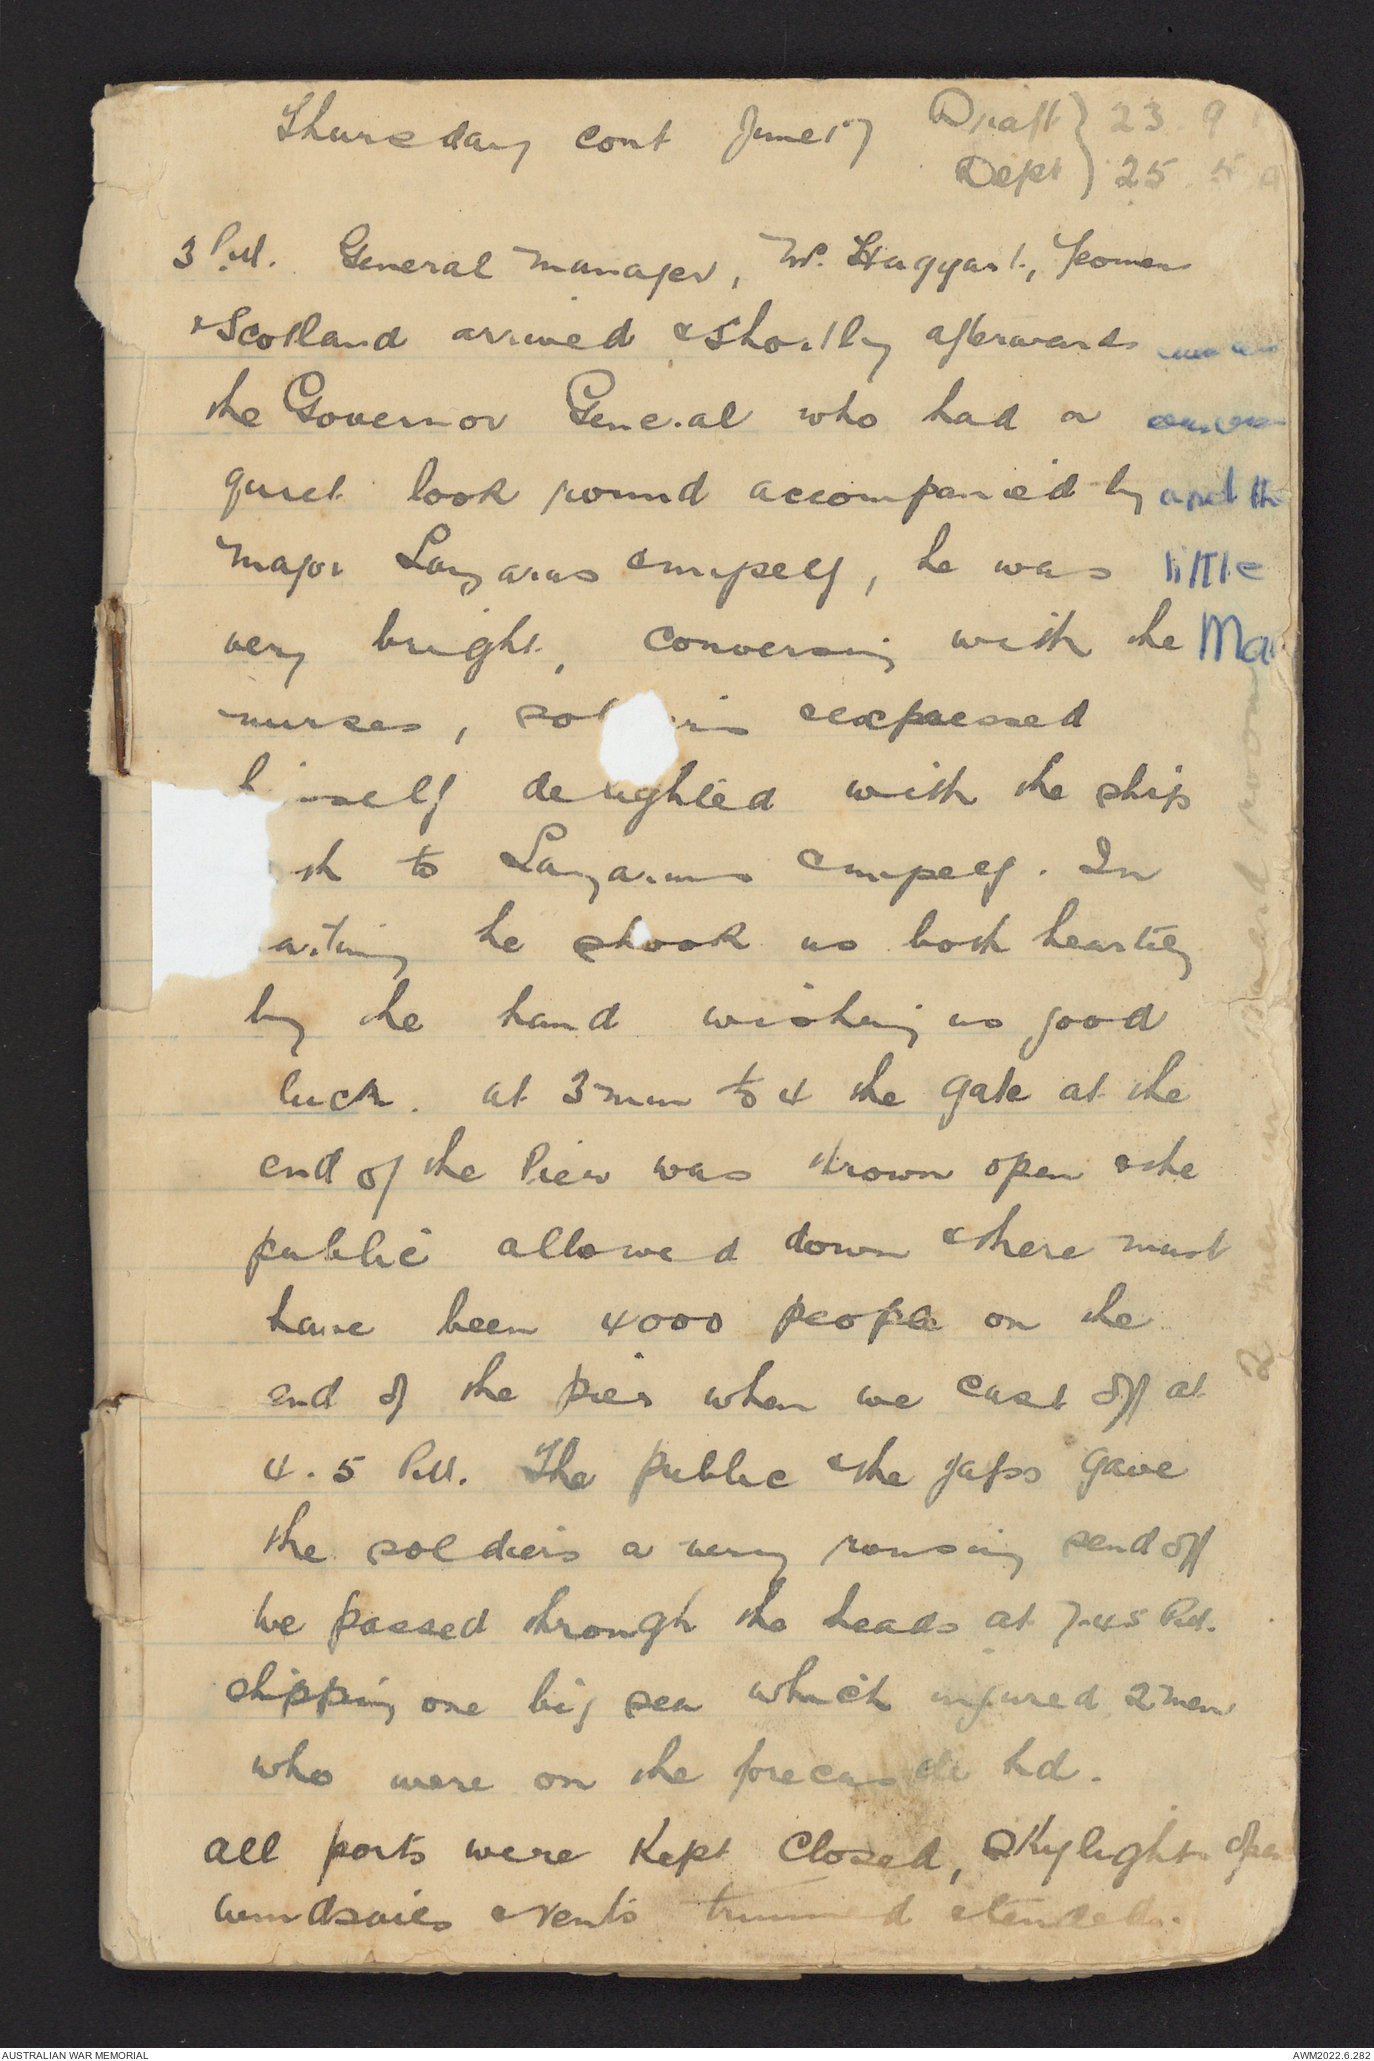 Thursday cont June 17
Draft } 23 9
Dept } 25
3 P.M. General Manager, Mr. Haggart, Yeomen
& Scotland arrived & shortly afterwards
the Governor General who had a
quiet look round accompanied by
Major Lazarus & myself, he was
very bright, conversing with the
nurses, sol ers & expressed
h mself delighted with the ship
th to Lazarus & myself. In
arting he shook us both heartily
by the hand wishing us good
luck. at 3 min to 4 the gate at the
end of the Pier was thrown open & the
public allowed down & there must
have been 4000 people on the
end of the pier when we cast off at
4.5 P.M. The public & the Japs gave
the soldiers a very rousing send off
We passed through the heads at 7.45 P.M.
shipping one big sea which injured 2 men
who were on the forecastle hd.
all ports were kept closed, skylights open
windsails & vents trimmed & tended to.
and th
little
Ma
2 men in